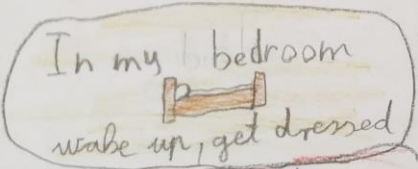 In my bedroom
wake up, get dressed